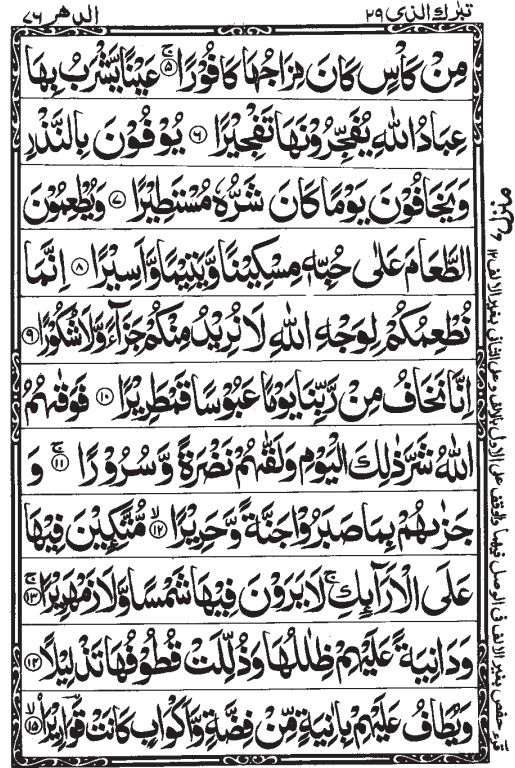 تبٰرك الذی ۲۹
الدهر ۷۶
مِنْ كَاْسٍ كَانَ مِزَاجُهَا كَافُوْرًا ۚ‏﴿۵﴾ عَيْنًا يَّشْرَبُ بِهَا
عِبَادُ اللّٰهِ يُفَجِّرُوْنَهَا تَفْجِيْرًا ﴿۶﴾ يُوْفُوْنَ بِالنَّذْرِ
وَيَخَافُوْنَ يَوْمًا كَانَ شَرُّهٗ مُسْتَطِيْرًا ﴿۷﴾ وَيُطْعِمُوْنَ
الطَّعَامَ عَلٰى حُبِّهٖ مِسْكِيْنًا وَّيَتِيْمًا وَّاَسِيْرًا ﴿۸﴾ اِنَّمَا
نُطْعِمُكُمْ لِوَجْهِ اللّٰهِ لَا نُرِيْدُ مِنْكُمْ جَزَآءً وَّلَا شُكُوْرًا ﴿۹﴾
اِنَّا نَخَافُ مِنْ رَّبِّنَا يَوْمًا عَبُوْسًا قَمْطَرِيْرًا ﴿۱۰﴾ فَوَقٰىهُمُ
اللّٰهُ شَرَّ ذٰلِكَ الْيَوْمِ وَلَقّٰىهُمْ نَضْرَةً وَّسُرُوْرًا ۚ‏﴿۱۱﴾ وَ
جَزٰىهُمْ بِمَا صَبَرُوْا جَنَّةً وَّحَرِيْرًا ۙ‏﴿۱۲﴾ مُّتَّكِـِٕيْنَ فِيْهَا
عَلَى الْاَرَآىِٕكِ ۚ لَا يَرَوْنَ فِيْهَا شَمْسًا وَّلَا زَمْهَرِيْرًا ۚ‏﴿۱۳﴾
وَدَانِيَةً عَلَيْهِمْ ظِلٰلُهَا وَذُلِّلَتْ قُطُوْفُهَا تَذْلِيْلًا ﴿۱۴﴾
وَيُطَافُ عَلَيْهِمْ بِاٰنِيَةٍ مِّنْ فِضَّةٍ وَّاَكْوَابٍ كَانَتْ قَوَارِيْرَا۟ ۙ‏﴿۱۵﴾
قرء حفص بغير الالف فى الوصل فيهما والوقف على الاول بالالف وعلى الثانى بغير الالف ۱۲